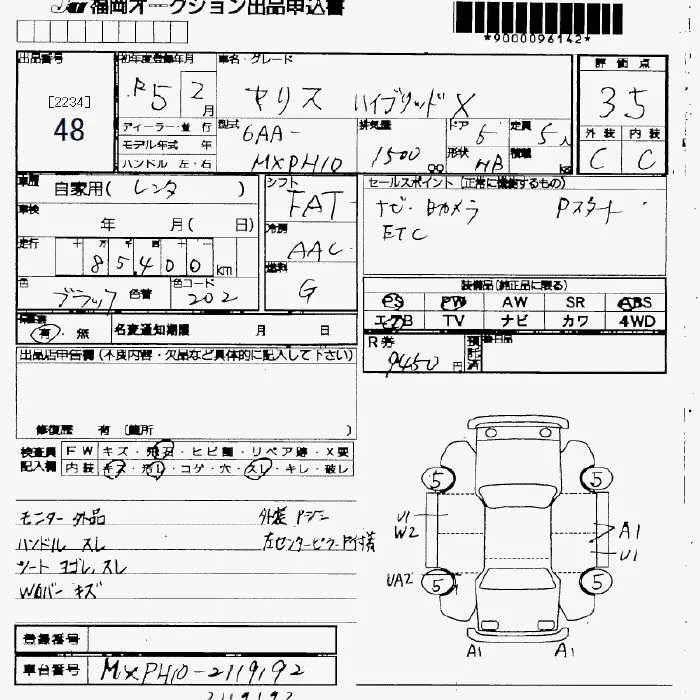 福岡オークション出品申込書
*9000096142*
出品番号
[2234]
48
初年度登録年月
R5 2月
車名・グレード
ヤリス ハイブリッド X
評価点
35
外装 内装
C C
ディーラー・並行
モデル年式 年
ハンドル 左・右
型式
6AA-
MXPH10
排気量
1500 cc
ドア
5
形状
HB
定員
5人
積載
kg
車歴
自家用(レンタ)
車検
年 月(日)
走行
十万千百十一
85,400km
色
ブラック
色替
色コード
202
シフト
FAT
冷房
AAC
燃料
G
セールスポイント(正常に機能するもの)
ナビ・Bカメラ Pスタート
ETC
装備品(純正品に限る)
PS PW AW SR ABS
エアB TV ナビ カワ 4WD
保証書
有・無
名変通知期限 月 日
R券
9450円
預託済
後日品
出品店申告欄(不良内容・欠品など具体的に記入して下さい)
修復歴 有(箇所 )
検査員記入欄
FW キズ・飛石・ヒビ割・リペア跡・X要
内装 キズ・汚レ・コゲ・穴・スレ・キレ・破レ
モニター外品
ハンドル スレ
シート ヨゴレ,スレ
Wカバー キズ
左センターピラー下付着
5 5
5 5
U1
W2
A1
U1
UA2
A1 A1
登録番号
車台番号 MXPH10-2119192
2119192